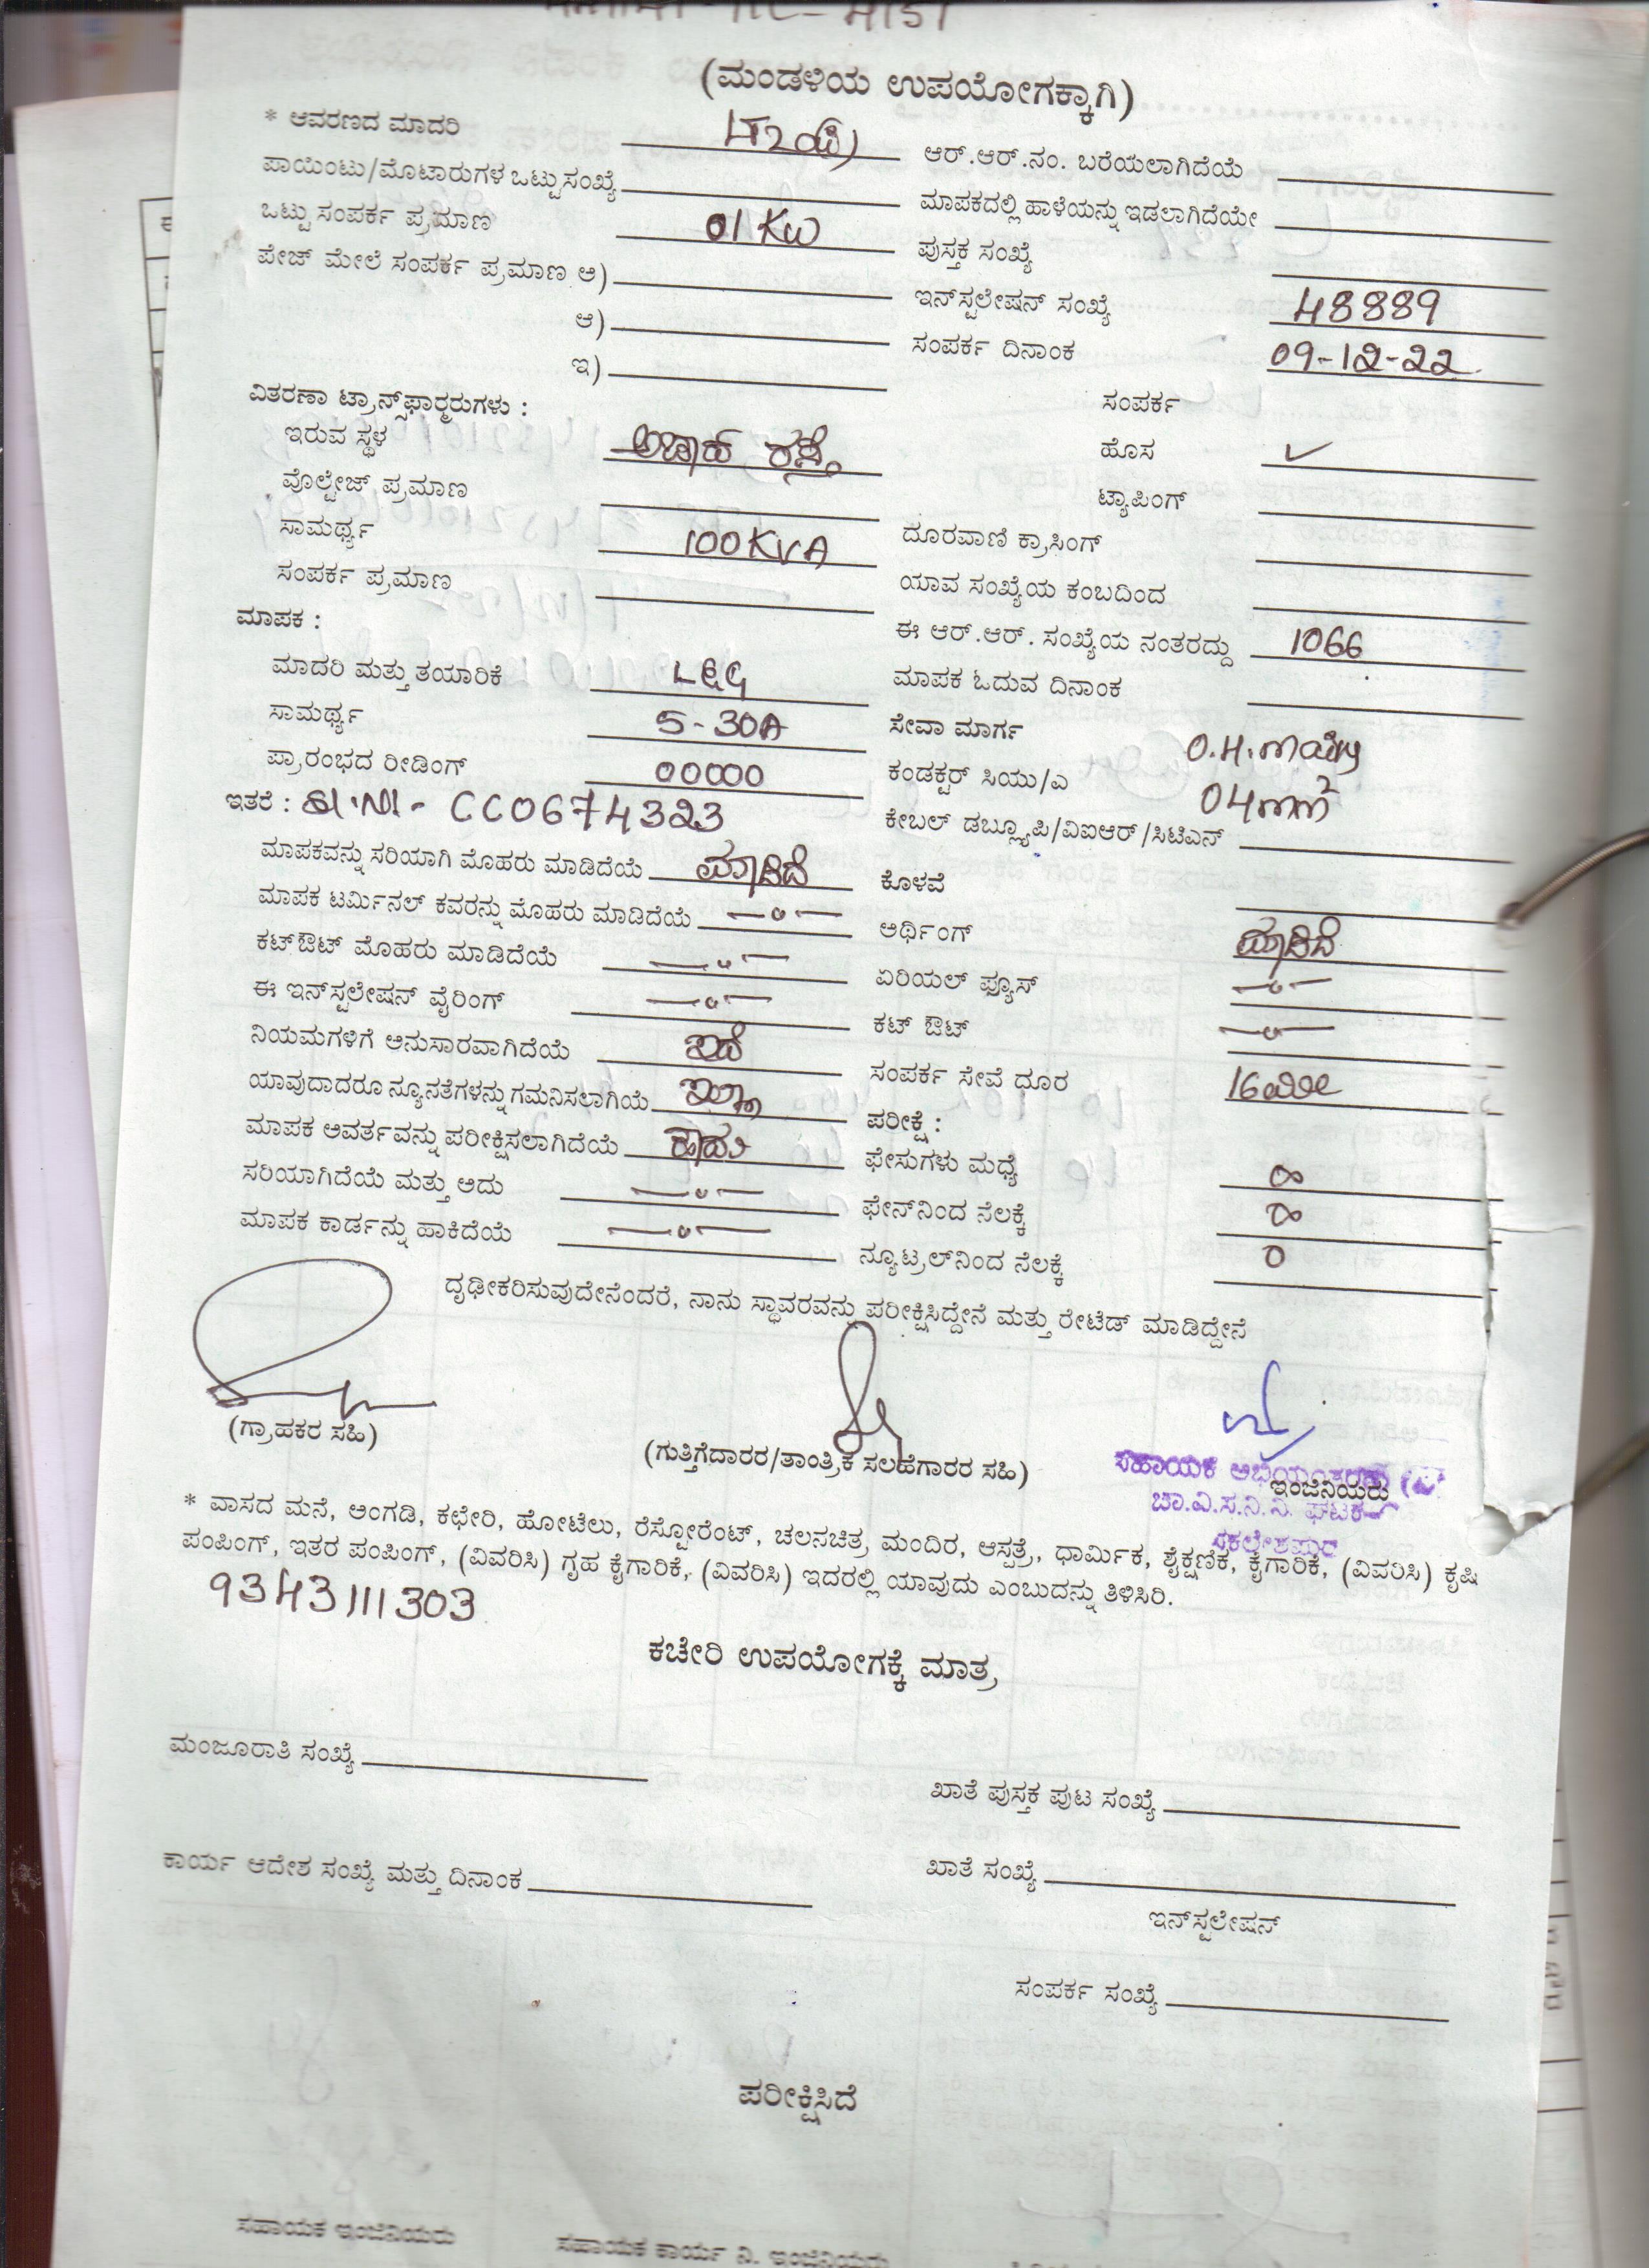 (ಮಂಡಳಿಯ ಉಪಯೋಗಕ್ಕಾಗಿ)
* ಆವರಣದ ಮಾದರಿ
ಆರ್.ಆರ್.ನಂ. ಬರೆಯಲಾಗಿದೆಯೆ
ಪಾಯಿಂಟು/ಮೊಟಾರುಗಳ ಒಟ್ಟುಸಂಖ್ಯೆ
ಮಾಪಕದಲ್ಲಿ ಹಾಳೆಯನ್ನು ಇಡಲಾಗಿದೆಯೇ
ಒಟ್ಟು ಸಂಪರ್ಕ ಪ್ರಮಾಣ 01 KW
ಪುಸ್ತಕ ಸಂಖ್ಯೆ
ಪೇಜ್ ಮೇಲೆ ಸಂಪರ್ಕ ಪ್ರಮಾಣ ಅ)
ಇನ್‌ಸ್ಟಲೇಷನ್ ಸಂಖ್ಯೆ 48889
ಆ)
ಸಂಪರ್ಕ ದಿನಾಂಕ 09-12-22
ಇ)
ವಿತರಣಾ ಟ್ರಾನ್ಸ್‌ಫಾರ್‍ಮರುಗಳು :
ಸಂಪರ್ಕ
ಇರುವ ಸ್ಥಳ ರಸ್ತೆ
ಹೊಸ ✓
ವೊಲ್ಟೇಜ್ ಪ್ರಮಾಣ
ಟ್ಯಾಪಿಂಗ್
ಸಾಮರ್ಥ್ಯ 100KVA
ದೂರವಾಣಿ ಕ್ರಾಸಿಂಗ್
ಸಂಪರ್ಕ ಪ್ರಮಾಣ
ಯಾವ ಸಂಖ್ಯೆಯ ಕಂಬದಿಂದ
ಮಾಪಕ :
ಈ ಆರ್.ಆರ್. ಸಂಖ್ಯೆಯ ನಂತರದ್ದು 1066
ಮಾದರಿ ಮತ್ತು ತಯಾರಿಕೆ L&G
ಮಾಪಕ ಓದುವ ದಿನಾಂಕ
ಸಾಮರ್ಥ್ಯ 5-30A
ಸೇವಾ ಮಾರ್ಗ O.H.
ಪ್ರಾರಂಭದ ರೀಡಿಂಗ್ 00000
ಕಂಡಕ್ಟರ್ ಸಿಯು/ಎ 04mm²
ಇತರೆ : Sl.No - CC0674323
ಕೇಬಲ್ ಡಬ್ಲ್ಯೂಪಿ/ವಿಐಆರ್/ಸಿಟಿಎನ್
ಮಾಪಕವನ್ನು ಸರಿಯಾಗಿ ಮೊಹರು ಮಾಡಿದೆಯೆ ಮಾಡಿದೆ
ಕೊಳವೆ
ಮಾಪಕ ಟರ್ಮಿನಲ್ ಕವರನ್ನು ಮೊಹರು ಮಾಡಿದೆಯೆ —"—
ಅರ್ಥಿಂಗ್ ಮಾಡಿದೆ
ಕಟ್‌ಔಟ್ ಮೊಹರು ಮಾಡಿದೆಯೆ —"—
ಏರಿಯಲ್ ಫ್ಯೂಸ್ —"—
ಈ ಇನ್‌ಸ್ಟಲೇಷನ್ ವೈರಿಂಗ್ —"—
ಕಟ್ ಔಟ್ —"—
ನಿಯಮಗಳಿಗೆ ಅನುಸಾರವಾಗಿದೆಯೆ ಇದೆ
ಸಂಪರ್ಕ ಸೇವೆ ಧೂರ 16ಮೀ
ಯಾವುದಾದರೂ ನ್ಯೂನತೆಗಳನ್ನು ಗಮನಿಸಲಾಗಿಯೆ ಇಲ್ಲಾ
ಪರೀಕ್ಷೆ :
ಮಾಪಕ ಅವರ್ತವನ್ನು ಪರೀಕ್ಷಿಸಲಾಗಿದೆಯೆ ಹೌದು
ಫೇಸುಗಳು ಮಧ್ಯೆ ∞
ಸರಿಯಾಗಿದೆಯೆ ಮತ್ತು ಅದು —"—
ಫೇನ್‌ನಿಂದ ನೆಲಕ್ಕೆ ∞
ಮಾಪಕ ಕಾರ್ಡನ್ನು ಹಾಕಿದೆಯೆ —"—
ನ್ಯೂಟ್ರಲ್‌ನಿಂದ ನೆಲಕ್ಕೆ 0
ದೃಢೀಕರಿಸುವುದೇನೆಂದರೆ, ನಾನು ಸ್ಥಾವರವನ್ನು ಪರೀಕ್ಷಿಸಿದ್ದೇನೆ ಮತ್ತು ರೇಟೆಡ್ ಮಾಡಿದ್ದೇನೆ
(ಗ್ರಾಹಕರ ಸಹಿ)
(ಗುತ್ತಿಗೆದಾರರ/ತಾಂತ್ರಿಕ ಸಲಹೆಗಾರರ ಸಹಿ)
ಸಹಾಯಕ ಅಭಿಯಂತರರು
ಇಂಜಿನಿಯರು
ಚಾ.ವಿ.ಸ.ನಿ.ನಿ. ಘಟಕ-
ಸಕಲೇಶಪುರ
* ವಾಸದ ಮನೆ, ಅಂಗಡಿ, ಕಛೇರಿ, ಹೋಟೆಲು, ರೆಸ್ಟೋರೆಂಟ್, ಚಲನಚಿತ್ರ ಮಂದಿರ, ಆಸ್ಪತ್ರೆ, ಧಾರ್ಮಿಕ, ಶೈಕ್ಷಣಿಕ, ಕೈಗಾರಿಕೆ, (ವಿವರಿಸಿ) ಕೃಷಿ
ಪಂಪಿಂಗ್, ಇತರ ಪಂಪಿಂಗ್, (ವಿವರಿಸಿ) ಗೃಹ ಕೈಗಾರಿಕೆ, (ವಿವರಿಸಿ) ಇದರಲ್ಲಿ ಯಾವುದು ಎಂಬುದನ್ನು ತಿಳಿಸಿರಿ.
9343111303
ಕಚೇರಿ ಉಪಯೋಗಕ್ಕೆ ಮಾತ್ರ
ಮಂಜೂರಾತಿ ಸಂಖ್ಯೆ
ಖಾತೆ ಪುಸ್ತಕ ಪುಟ ಸಂಖ್ಯೆ
ಕಾರ್ಯ ಆದೇಶ ಸಂಖ್ಯೆ ಮತ್ತು ದಿನಾಂಕ
ಖಾತೆ ಸಂಖ್ಯೆ
ಇನ್‌ಸ್ಟಲೇಷನ್
ಸಂಪರ್ಕ ಸಂಖ್ಯೆ
ಪರೀಕ್ಷಿಸಿದೆ
ಸಹಾಯಕ ಇಂಜಿನಿಯರು
ಸಹಾಯಕ ಕಾರ್ಯ ನಿ. ಇಂಜಿನಿಯರು